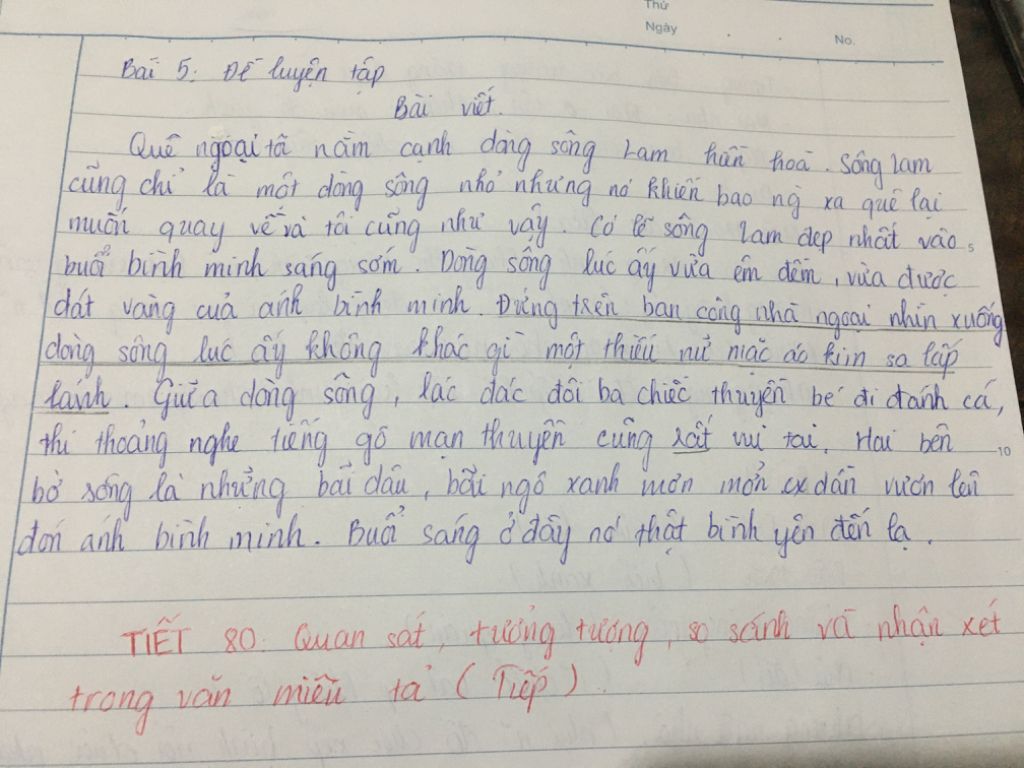 Thứ
Ngày . .
No.
Bài 5: Đề luyện tập
Bài viết.
Quê ngoại tôi nằm cạnh dòng sông Lam hiền hoà. Sông Lam
cũng chỉ là một dòng sông nhỏ nhưng nó khiến bao ng xa quê lại
muốn quay về và tôi cũng như vậy. Có lẽ sông Lam đẹp nhất vào
5
buổi bình minh sáng sớm. Dòng sông lúc ấy vừa êm đềm, vừa được
dát vàng của ánh bình minh. Đứng trên ban công nhà ngoại nhìn xuống
dòng sông lúc ấy không khác gì một thiếu nữ mặc áo kim sa lấp
lánh. Giữa dòng sông, lác đác đôi ba chiếc thuyền bé đi đánh cá,
thi thoảng nghe tiếng gõ mạn thuyền cũng rất vui tai. Hai bên
10
bờ sông là những bãi dâu, bãi ngô xanh mơn mởn cx dần vươn lên
đón ánh bình minh. Buổi sáng ở đây nó thật bình yên đến lạ.
TIẾT 80: Quan sát, tưởng tượng, so sánh và nhận xét
trong văn miêu tả (Tiếp)